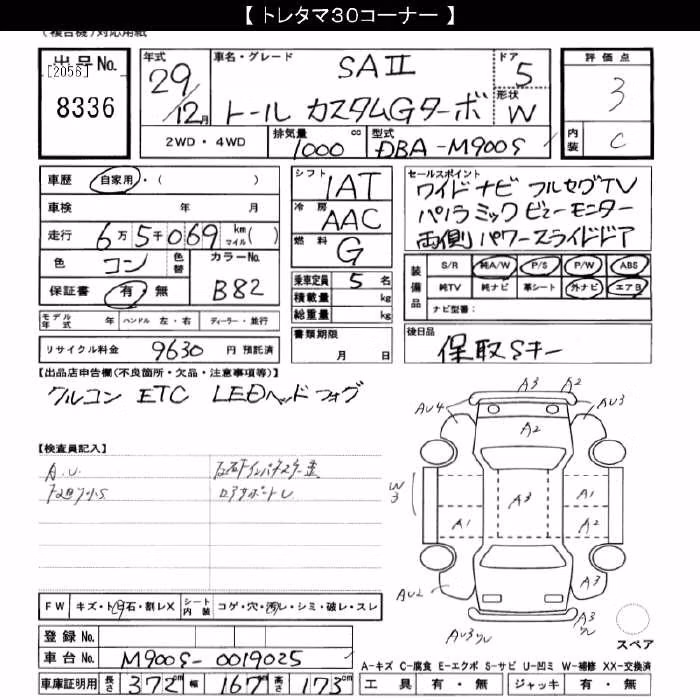 【 トレタマ30コーナー 】
(複合機)対応用紙
出品No.
[2056]
8336
年式 29/12月
車名・グレード SAII
トール カスタムGターボ
ドア 5
形状 W
2WD・4WD
排気量 1000 cc
型式 DBA-M900S
評価点 3
内装 C
車歴 自家用・( )
車検 年 月
走行 6万5千069 km マイル( )
色 コン 色替 カラーNo. B82
保証書 有・無
モデル年式 年 ハンドル 左・右 ディーラー・並行
リサイクル料金 9630 円 預託済
シフト IAT
冷房 AAC
燃料 G
乗車定員 5 名
積載量 kg
総重量 kg
書類期限
月 日
セールスポイント
ワイドナビ フルセグTV
パノラミックビューモニター
両側パワースライドドア
装備品 S/R 純A/W P/S P/W ABS
純TV 純ナビ 革シート 外ナビ エアB
ナビ型番:
後日品
保取Sキー
【出品店申告欄(不良箇所・欠品・注意事項等)】
クルコン ETC LEDヘッド フォグ
【検査員記入】
A.U.
A3 A2
AU4 AU3
A2
W3 A3 A1
A1 A2
AU2 A3
AU3 A3
スペア
FW キズ・ト・石・割レX シート内装 コゲ・穴・汚レ・シミ・破レ・スレ
登録No.
車台No. M900S-0019025
車庫証明用 長さ 372 cm 幅 167 cm 高さ 173 cm
A-キズ C-腐食 E-エクボ S-サビ U-凹ミ W-補修 XX-交換済
工具 有・無 ジャッキ 有・無